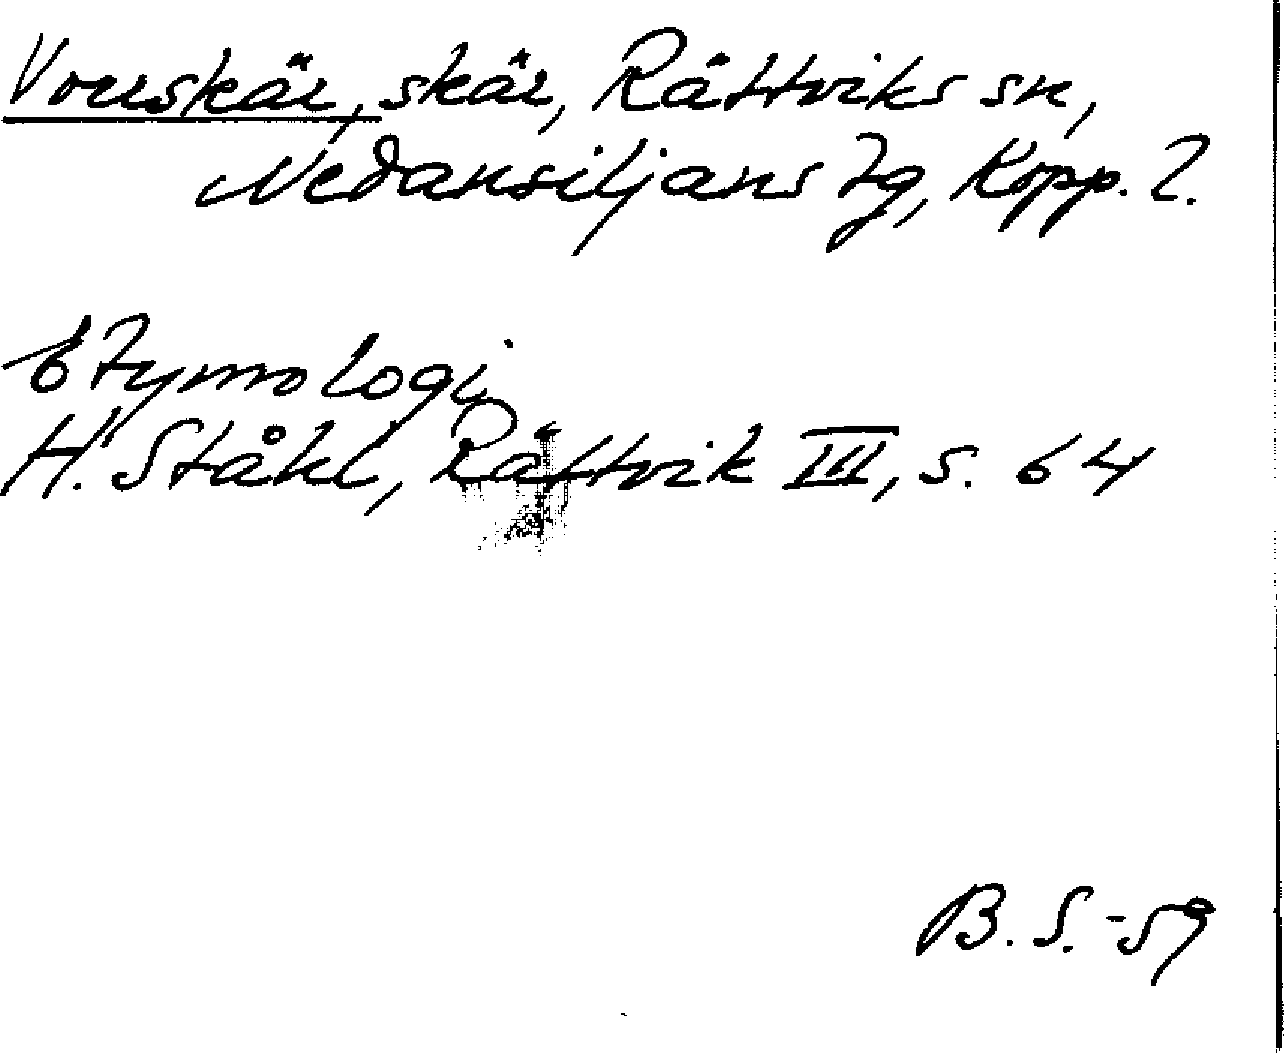 Vorrskär, skär, Rättviks sn,
Nedansiljans tg, Kopp. l.
Etymologi
H. Ståhl, Rättvik III, s. 64
B. S. -59